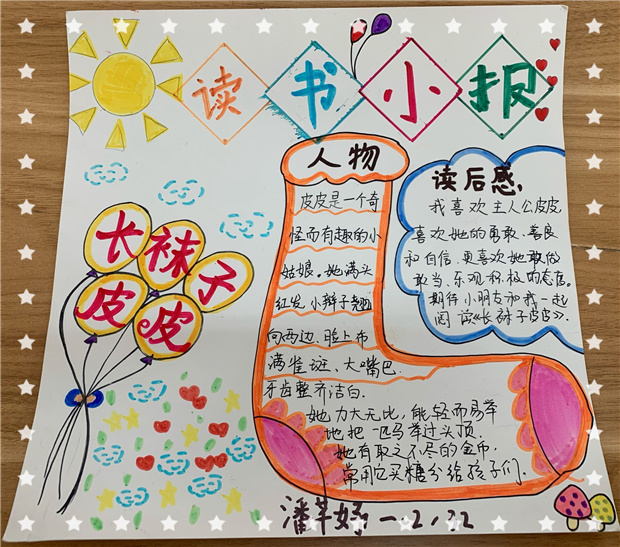 读书小报
长袜子
皮皮
人物
皮皮是一个奇
怪而有趣的小
姑娘。她满头
红发、小辫子翘
向两边、脸上布
满雀斑、大嘴巴.
牙齿整齐洁白.
她力大无比，能轻而易举
地把一匹马举过头顶.
她有取之不尽的金币，
常用它买糖分给孩子们.
读后感,
我喜欢主人公皮皮,
喜欢她的勇敢、善良
和自信、更喜欢她敢做
敢当、乐观积极的态度。
期待小朋友和我一起
阅读《长袜子皮皮》.
潘芊妤 一.2/22